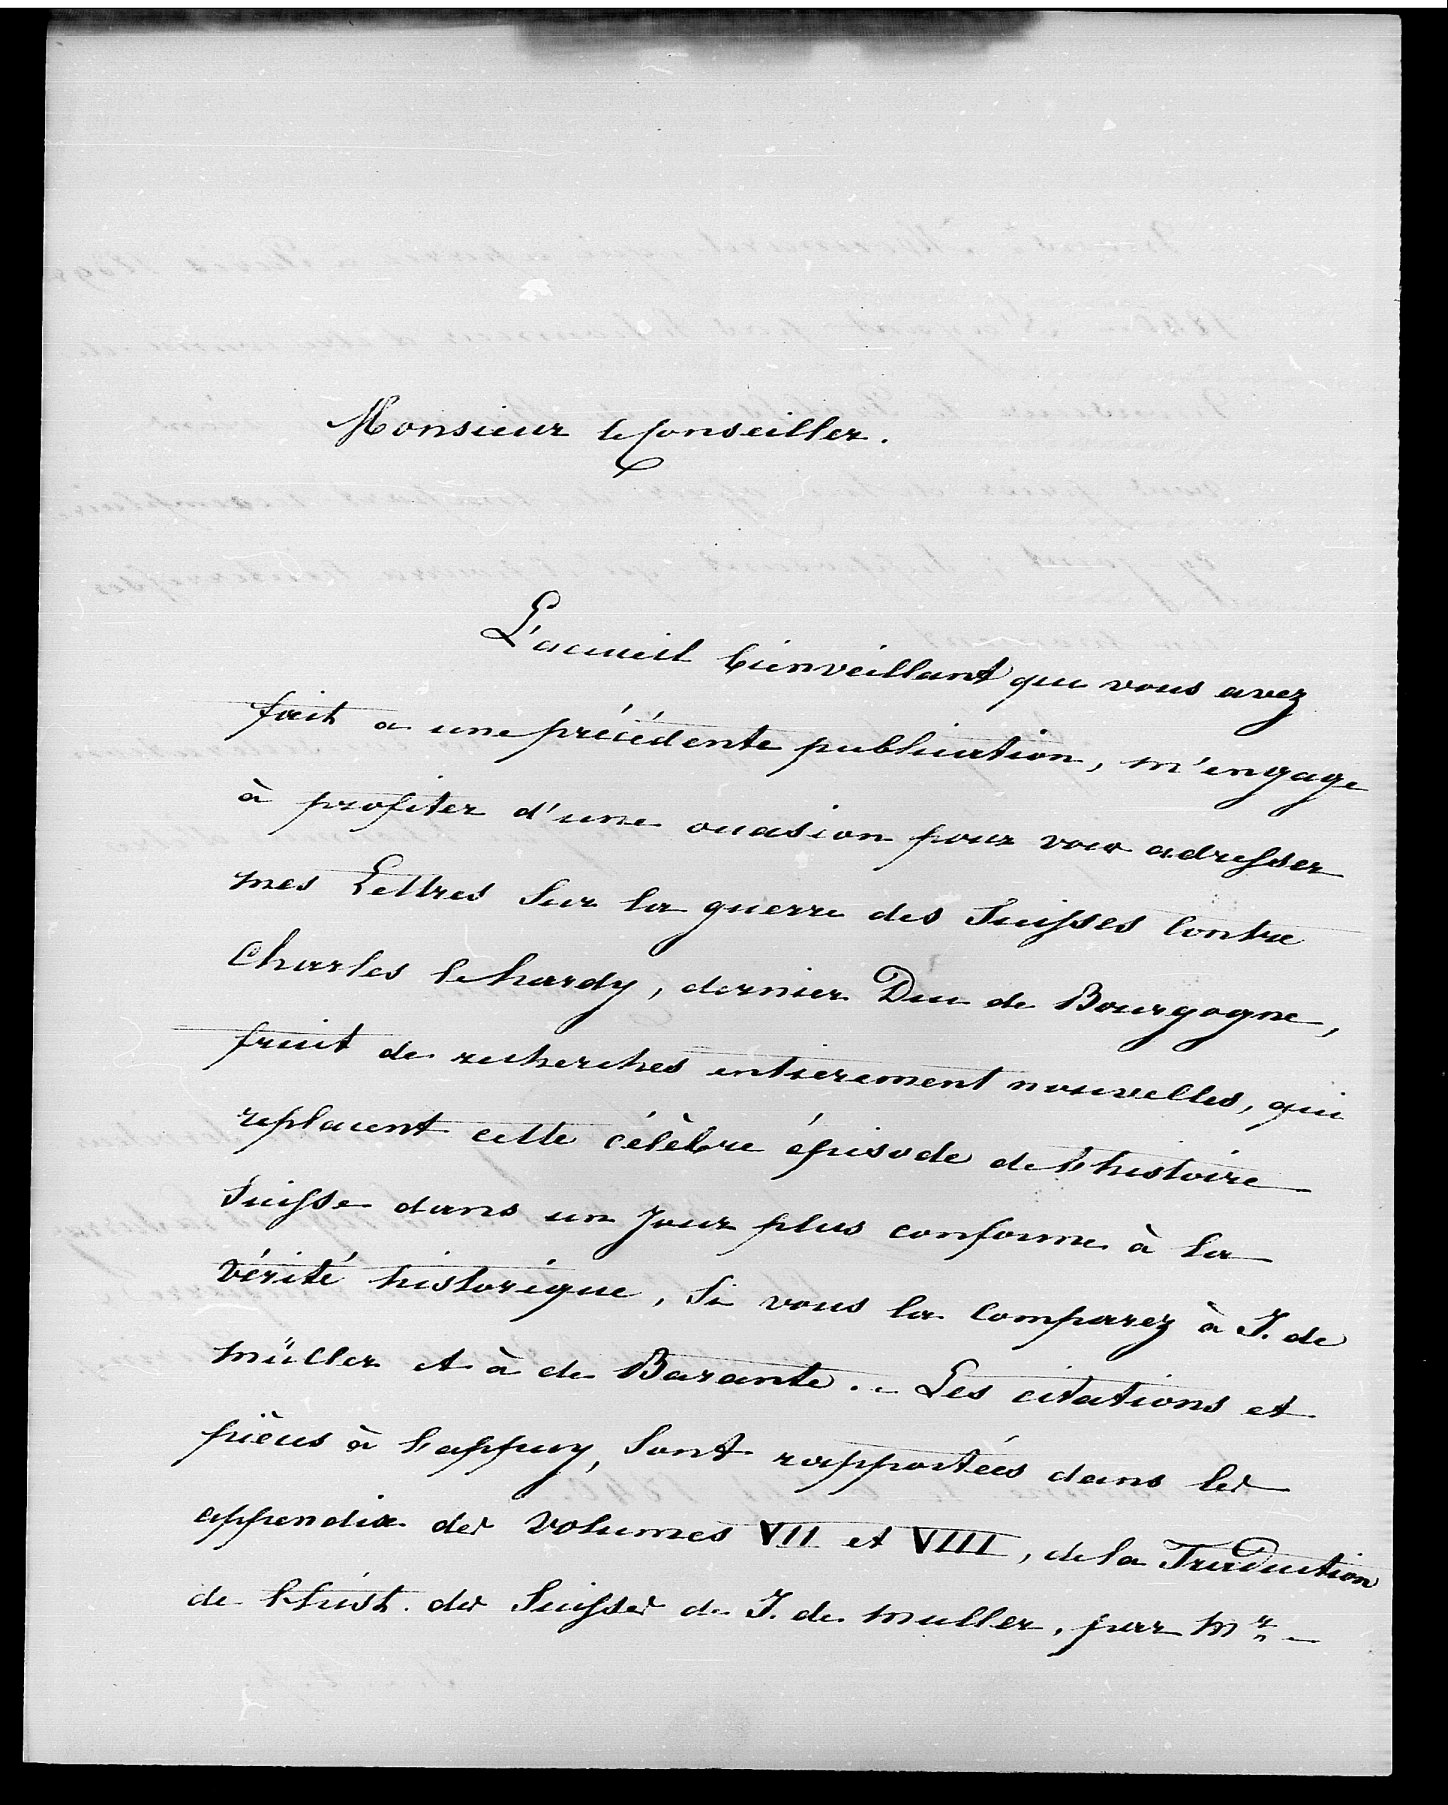 Monsieur le Conseiller.
L'acueil bienveillant que vous avez
fait a une précédente publication, m'engage
à profiter d'une ocasion pour vous adresser
mes Lettres sur la guerre des Suisses contre
Charles le hardy, dernier Duc de Bourgogne,
fruit de recherches entierement nouvelles, qui
replacent cette célèbre épisode de l'histoire
Suisse dans un jour plus conforme à la
vérité historique, si vous la comparez à J. de
müller et à de Barante. Les citations et
pièces à l'appuy, sont rapportées dans les
appendix des volumes VII et VIII, de la Traduction
de l'hist. des Suisses de J. de muller, par Mr